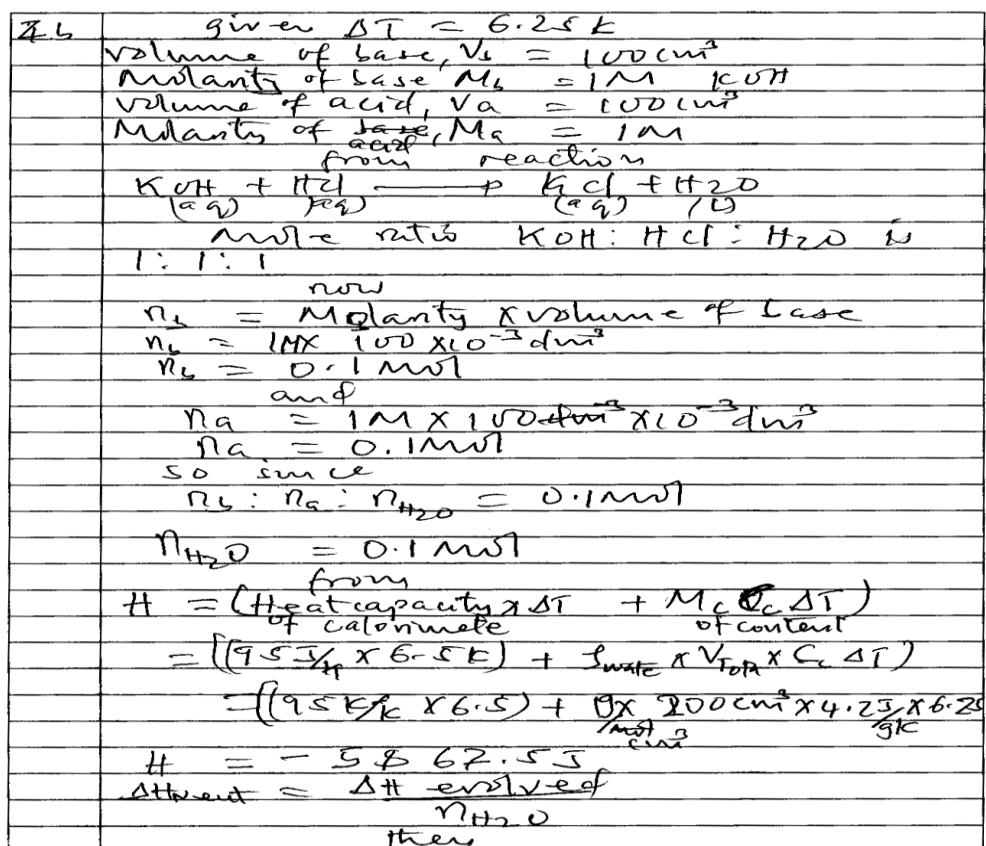 7b given ΔT = 6.25K
Volume of base, Vb = 100cm³
Molarity of base Mb = 1M KOH
Volume of acid, Va = 100cm³
Molarity of base, Ma = 1M
acid
from reaction
KOH + HCl ⟶ KCl + H2O
(aq) (aq) (aq) (l)
Mole ratio KOH : HCl : H2O is
1 : 1 : 1
now
nb = Molarity x volume of base
nb = 1M X 100 X10⁻³ dm³
nb = 0.1 mol
and
na = 1M X 100 dm⁻³ X10⁻³ dm³
na = 0.1mol
so since
nb : na : nH2O = 0.1mol
nH2O = 0.1 mol
from
H = (Heat capacity x ΔT + Mc Cc ΔT)
of calorimete of content
= ((95 J/K X 6.5K) + ρwate x VTota x Cc ΔT)
= ((95 K/K X 6.5) + X 200cm³ x 4.2J/gK x 6.25
cm³
H = - 5862.5J
ΔHneut = ΔH evolved
nH2O
then